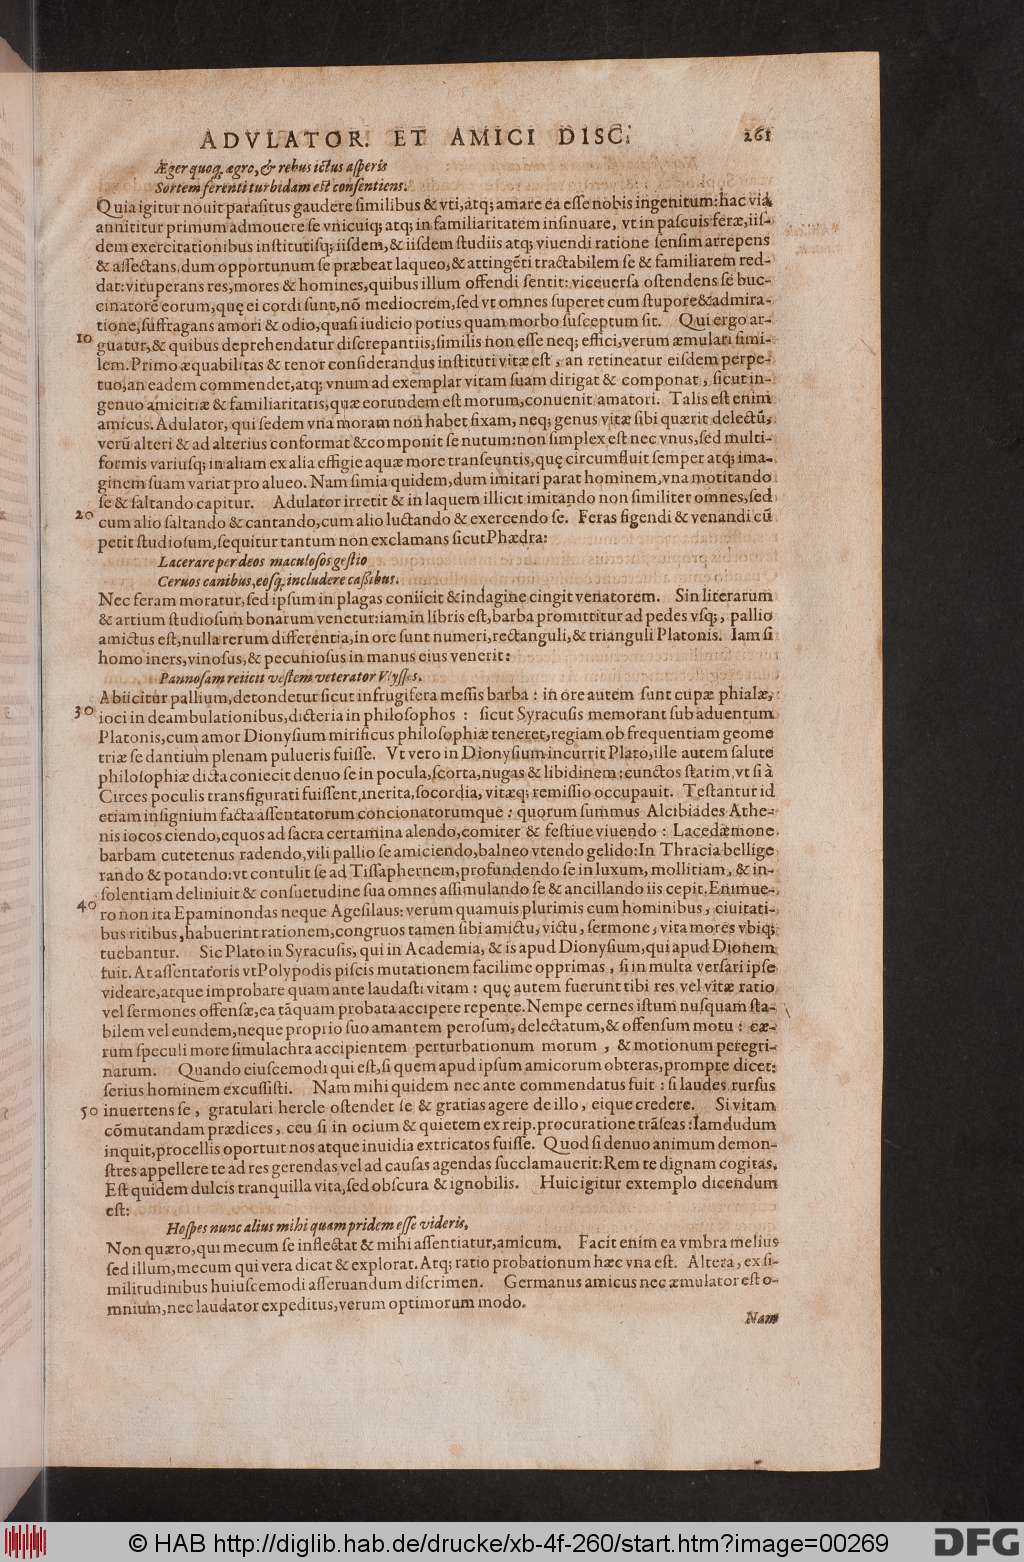 ADVLATOR. ET AMICI DISC. 261
Æger quoq, ægro, & rebus ictus asperis
Sortem ferenti turbidam est consentiens.
Quia igitur nouit parasitus gaudere similibus & vti, atq; amare ea esse nobis ingenitum: hac via
annititur primum admouere se vnicuiq; atq; in familiaritatem insinuare, vt in pascuis feræ, iis-
dem exercitationibus institutisq; iisdem, & iisdem studiis atq; viuendi ratione sensim arrepens
& affectans, dum opportunum se præbeat laqueo, & attingẽti tractabilem se & familiarem red-
dat: vituperans res, mores & homines, quibus illum offendi sentit: viceuersa ostendens se buc-
cinatorẽ eorum, quę ei cordi sunt, nõ mediocrem, sed vt omnes superet cum stupore & admira-
tione, suffragans amori & odio, quasi iudicio potius quam morbo susceptum sit. Qui ergo ar-
10 guatur, & quibus deprehendatur discrepantiis, similis non esse neq; effici, verum æmulari simi-
lem. Primo æquabilitas & tenor considerandus instituti vitæ est, an retineatur eisdem perpe-
tuo, an eadem commendet, atq; vnum ad exemplar vitam suam dirigat & componat, sicut in-
genuo amicitiæ & familiaritatis, quæ eorundem est morum, conuenit amatori. Talis est enim
amicus. Adulator, qui sedem vna moram non habet fixam, neq; genus vitæ sibi quærit delectũ,
verũ alteri & ad alterius conformat & componit se nutum: non simplex est nec vnus, sed multi-
formis variusq; in aliam ex alia effigie aquæ more transeuntis, quę circumfluit semper atq; ima-
ginem suam variat pro alueo. Nam simia quidem, dum imitari parat hominem, vna motitando
se & saltando capitur. Adulator irretit & in laquem illicit imitando non similiter omnes, sed
20 cum alio saltando & cantando, cum alio luctando & exercendo se. Feras figendi & venandi cũ
petit studiosum, sequitur tantum non exclamans sicut Phædra:
Lacerare per deos maculosos gestio
Ceruos canibus, eosq, includere cassibus.
Nec feram moratur, sed ipsum in plagas coniicit & indagine cingit venatorem. Sin literarum
& artium studiosum bonarum venetur: iam in libris est, barba promittitur ad pedes vsq;, pallio
amictus est, nulla rerum differentia, in ore sunt numeri, rectanguli, & trianguli Platonis. Iam si
homo iners, vinosus, & pecuniosus in manus eius venerit:
Pannosam reiicit vestem veterator Vlysses.
Abiicitur pallium, detondetur sicut infrugifera messis barba: in ore autem sunt cupæ phialæ,
30 ioci in deambulationibus, dicteria in philosophos: sicut Syracusis memorant sub aduentum
Platonis, cum amor Dionysium mirificus philosophiæ teneret, regiam ob frequentiam geome
triæ se dantium plenam pulueris fuisse. Vt vero in Dionysium incurrit Plato, ille autem salute
philosophiæ dicta coniecit denuo se in pocula, scorta, nugas & libidinem: cunctos statim, vt si à
Circes poculis transfigurati fuissent, inerita, socordia, vitæq; remissio occupauit. Testantur id
etiam insignium facta assentatorum concionatorumque: quorum summus Alcibiades Athe-
nis iocos ciendo, equos ad sacra certamina alendo, comiter & festiue viuendo: Lacedæmone
barbam cutetenus radendo, vili pallio se amiciendo, balneo vtendo gelido: In Thracia bellige
rando & potando: vt contulit se ad Tissaphernem, profundendo se in luxum, mollitiam, & in-
solentiam deliniuit & consuetudine sua omnes assimulando se & ancillando iis cepit. Enimue-
40 ro non ita Epaminondas neque Agesilaus: verum quamuis plurimis cum hominibus, ciuitati-
bus ritibus, habuerint rationem, congruos tamen sibi amictu, victu, sermone, vita mores vbiq;
tuebantur. Sic Plato in Syracusis, qui in Academia, & is apud Dionysium, qui apud Dionem
fuit. At assentatoris vt Polypodis piscis mutationem facilime opprimas, si in multa versari ipse
videare, atque improbare quam ante laudasti vitam: quę autem fuerunt tibi res vel vitæ ratio
vel sermones offensæ, ea tãquam probata accipere repente. Nempe cernes istum nusquam sta-
bilem vel eundem, neque proprio suo amantem perosum, delectatum, & offensum motu: cæ-
rum speculi more simulachra accipientem perturbationum morum, & motionum peregri-
narum. Quando eiuscemodi qui est, si quem apud ipsum amicorum obteras, prompte dicet:
serius hominem excussisti. Nam mihi quidem nec ante commendatus fuit: si laudes rursus
50 inuertens se, gratulari hercle ostendet se & gratias agere de illo, eique credere. Si vitam
cõmutandam prædices, ceu si in ocium & quietem ex reip. procuratione trãseas: Iamdudum
inquit, procellis oportuit nos atque inuidia extricatos fuisse. Quod si denuo animum demon-
stres appellere te ad res gerendas vel ad causas agendas succlamauerit: Rem te dignam cogitas.
Est quidem dulcis tranquilla vita, sed obscura & ignobilis. Huic igitur extemplo dicendum
est:
Hospes nunc alius mihi quam pridem esse videris.
Non quæro, qui mecum se inflectat & mihi assentiatur, amicum. Facit enim ea vmbra melius
sed illum, mecum qui vera dicat & explorat. Atq; ratio probationum hæc vna est. Altera, ex si-
militudinibus huiuscemodi asseruandum discrimen. Germanus amicus nec æmulator est o-
mnium, nec laudator expeditus, verum optimorum modo.
Nam
© HAB http://diglib.hab.de/drucke/xb-4f-260/start.htm?image=00269
DFG